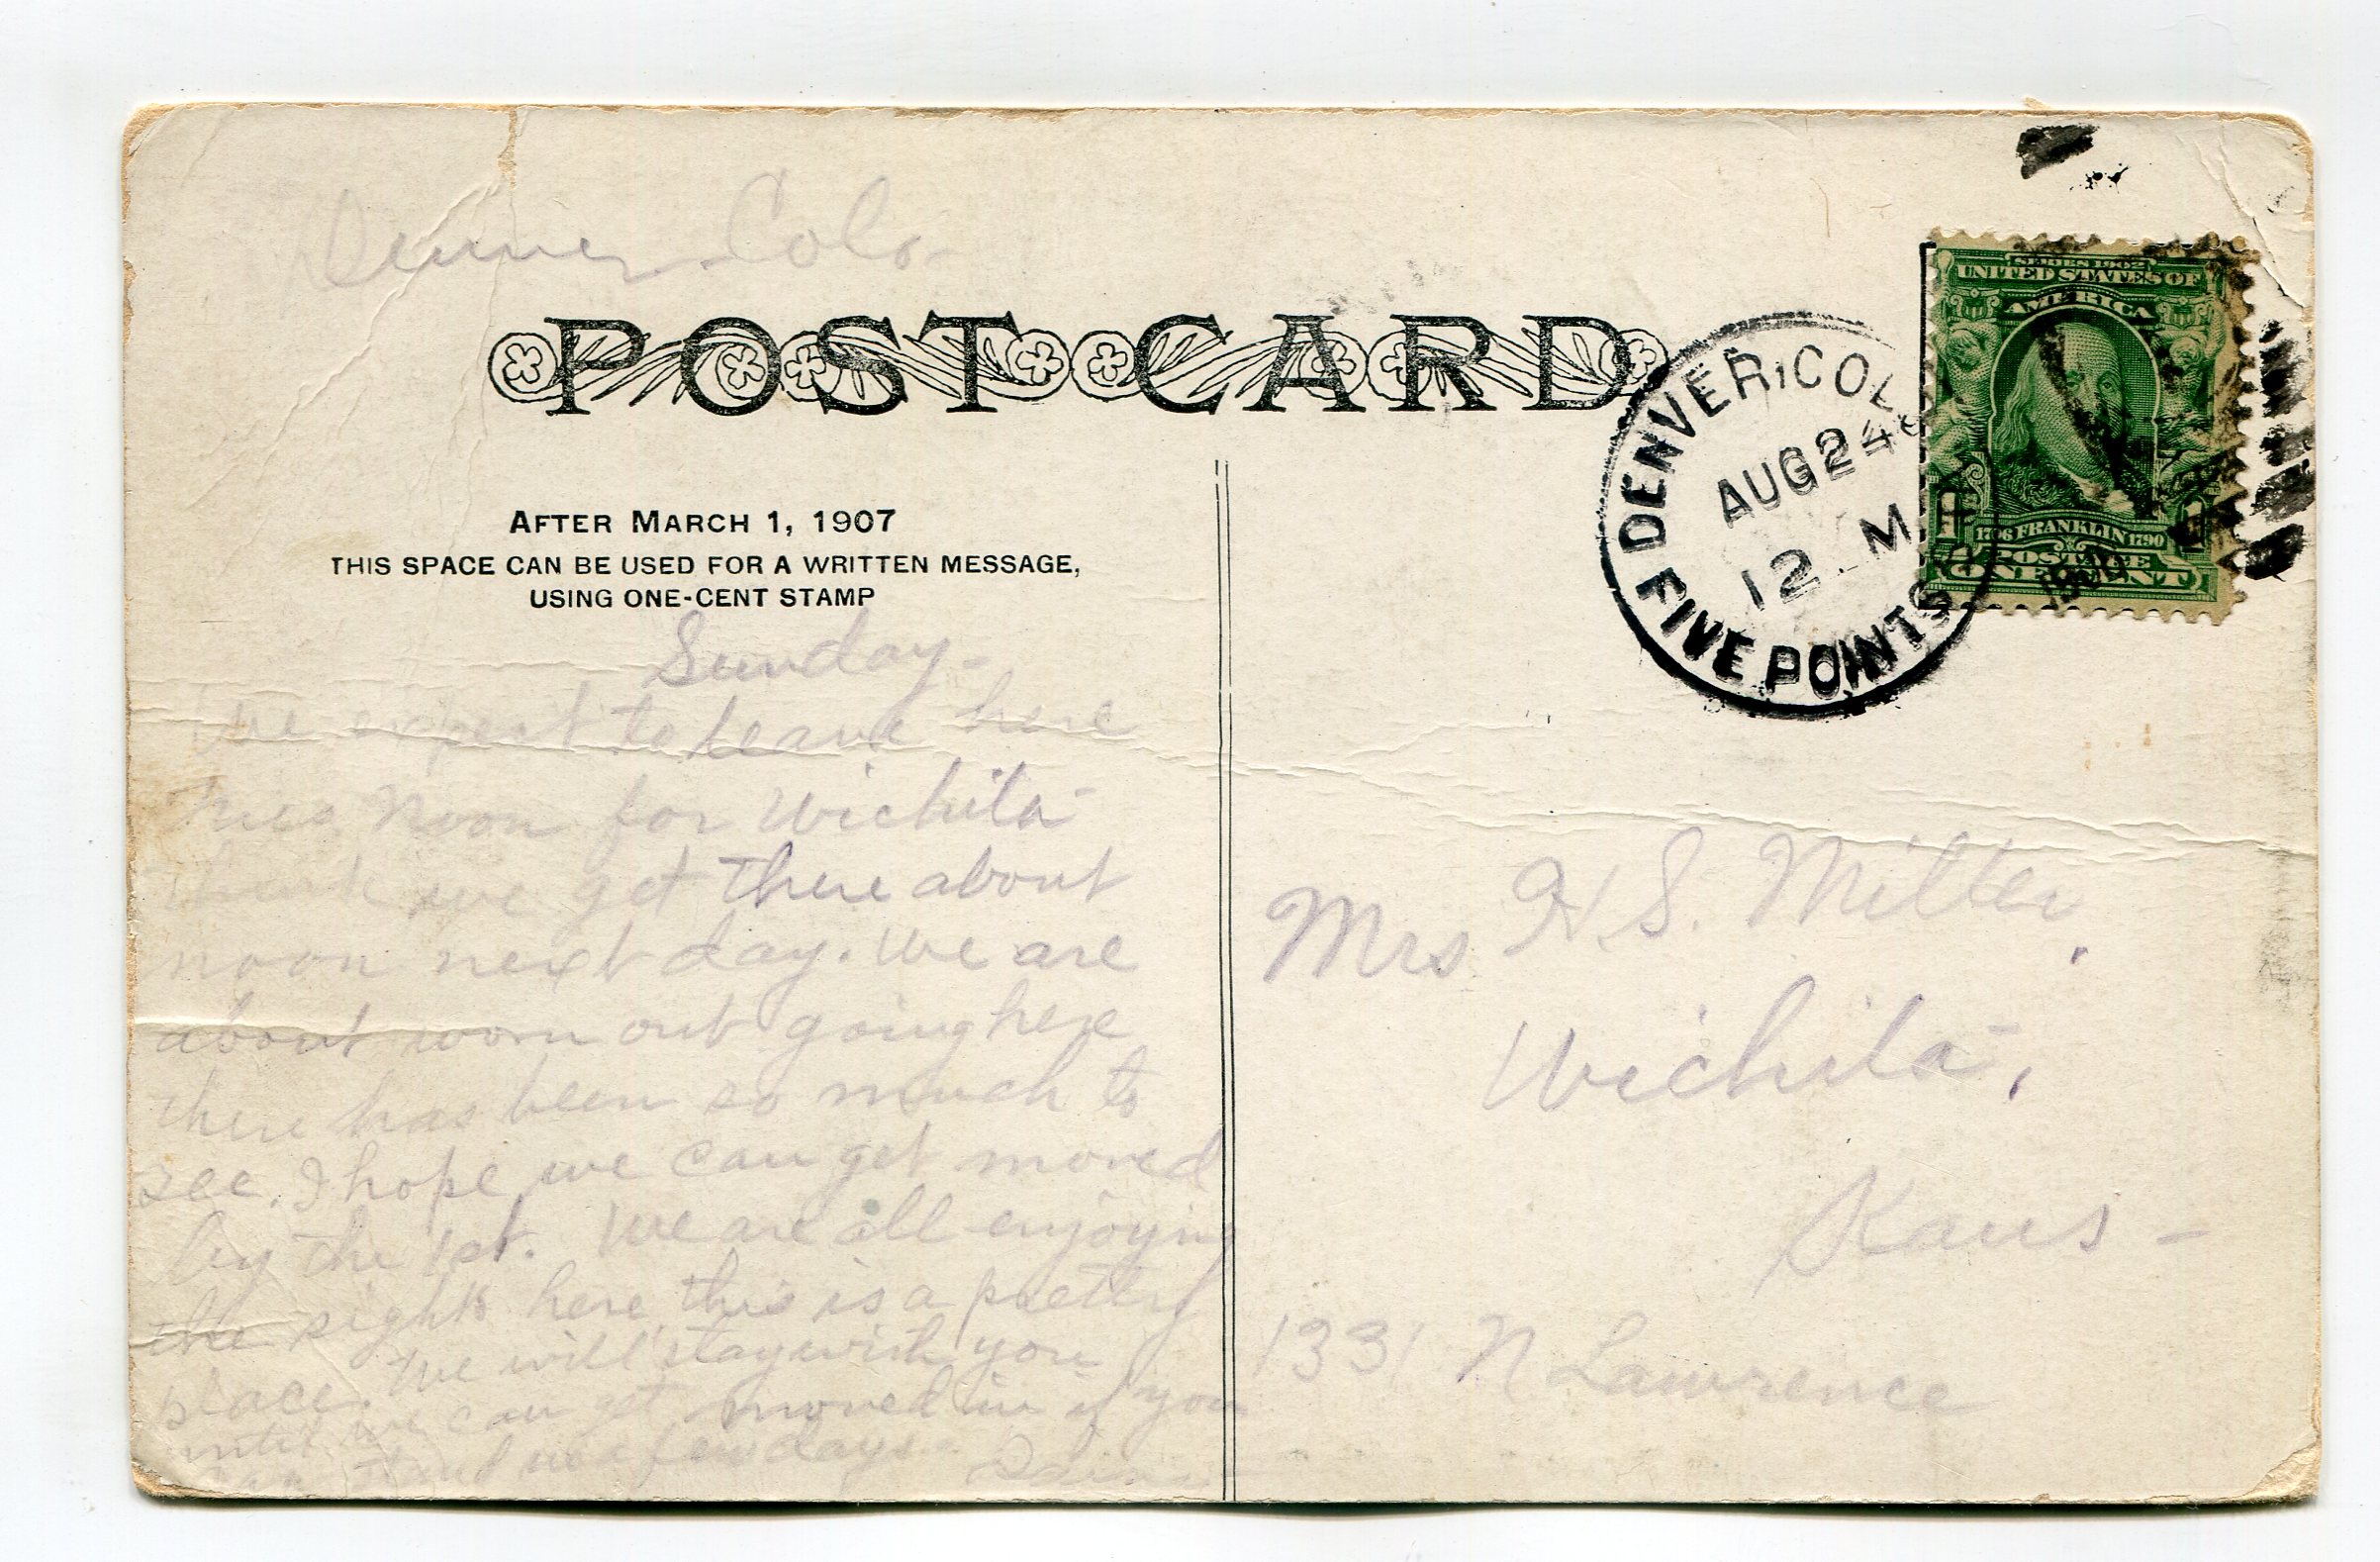 Denver Colo-
POST CARD
AFTER MARCH 1, 1907
THIS SPACE CAN BE USED FOR A WRITTEN MESSAGE,
USING ONE-CENT STAMP
Sunday-
We expect to leave here
this noon for Wichita
think we get there about
noon next day. We are
about worn out going here
there has been so much to
see. I hope we can get moved
by the 1st. We are all enjoying
the sights here this is a pretty
place. We will stay with you
until we can get moved in if you
can stand us a few days.
DENVER, COLO
AUG 24
12 M
FIVE POINTS STA
SERIES 1902
UNITED STATES OF
AMERICA
1706 FRANKLIN 1790
POSTAGE
ONE CENT
Mrs H.S. Miller,
Wichita,
Kans-
1331 N Lawrence